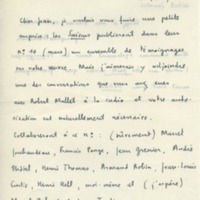 Cher Jean, je voulais vous faire une petite
surprise : les Saisons publieront dans leur
n° 10 (mars) un ensemble de témoignages
sur votre œuvre. Mais j'aimerais y adjoindre
une des conversations que vous avez eues
avec Robert Mallet à la radio et votre auto-
risation est naturellement nécessaire.
Collaboreront à ce n° : (sûrement) Marcel
Jouhandeau, Francis Ponge, Jean Grenier, André
Dhôtel, Henri Thomas, Armand Robin, Jean-Louis
Curtis, Henri Hell, moi-même et (j'espère)